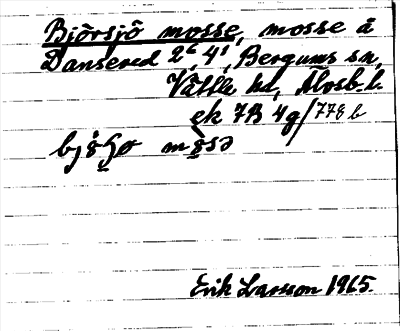 Björsjö mosse, mosse å
Dansered 2⁶, 4¹, Bergums sn,
Vättle hd, Älvsb. l.
ek 7B 4g/778 b
mo̤sə
Erik Larsson 1965.